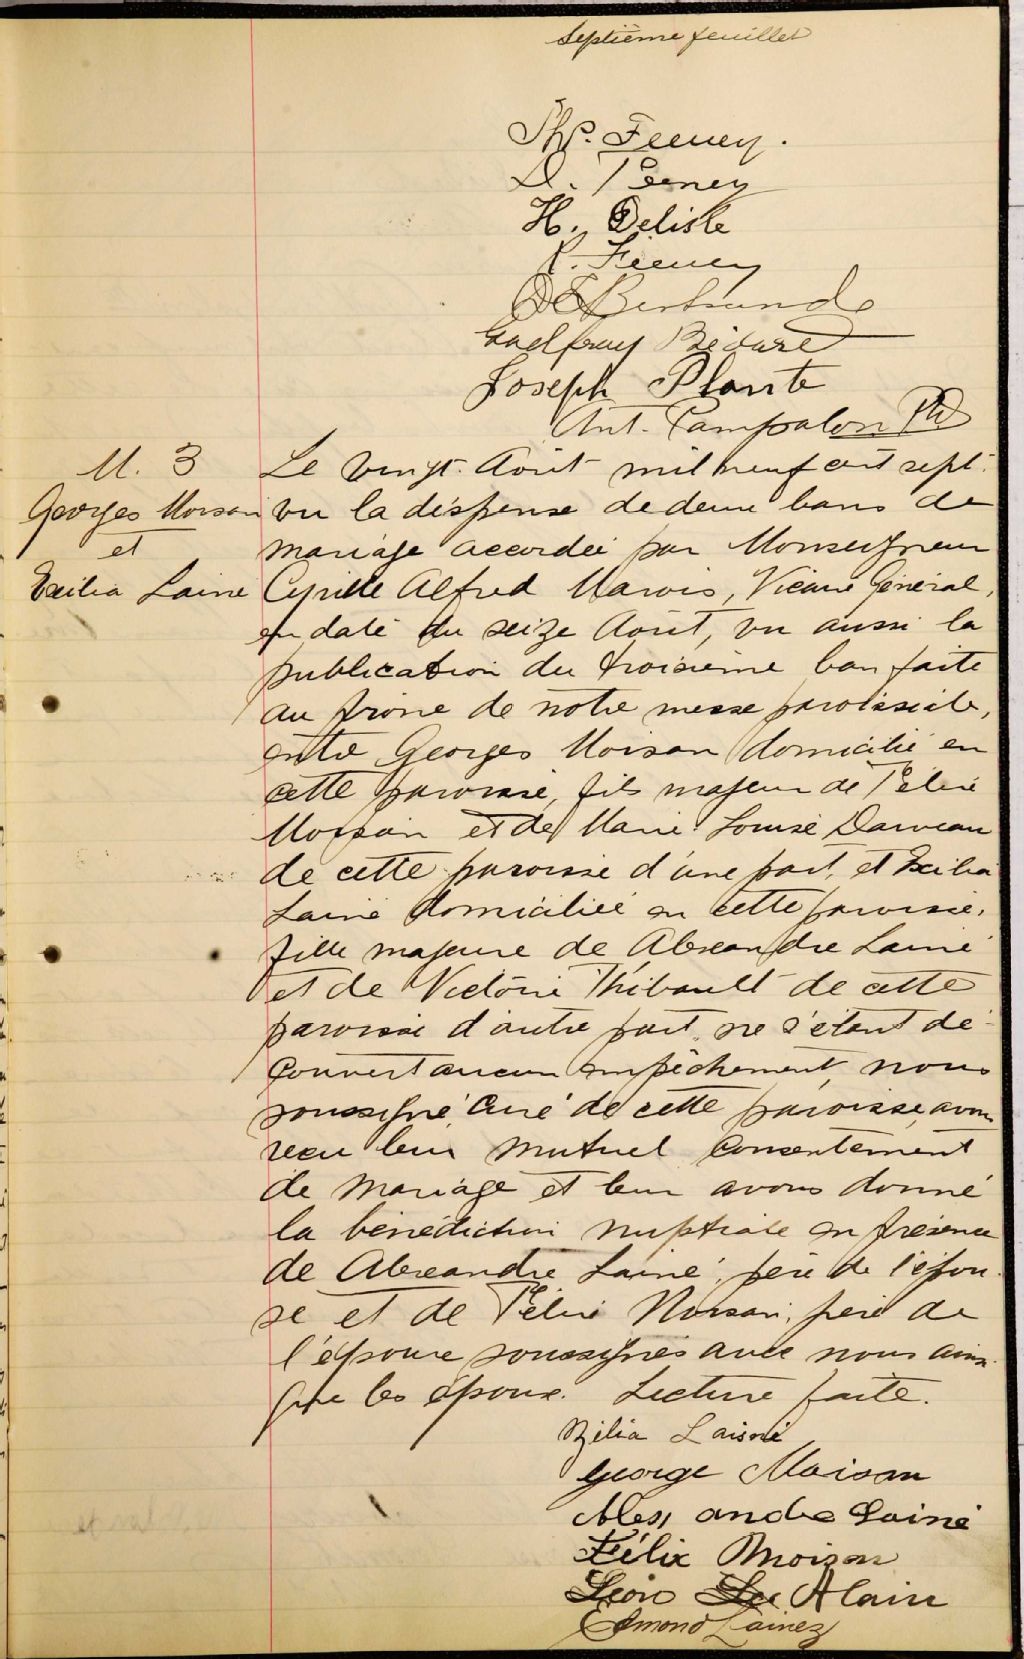 Septième feuillet
Thos. Feeney.
D. Feeney
H. Delisle
R. Feeney
Bertrand
Godfray Bédard
Joseph Plante
Ant. Pampalon Ptre
M. 3
Georges Moisan
et
Exilia Lainé
Le vingt Août mil neuf cent sept.
vu la dispense de deux bans de
mariage accordée par Monseigneur
Cyrille Alfred Marois, Vicaire Général,
en date du seize Août, vu aussi la
publication du troisième ban faite
au prône de notre messe paroissiale,
entre Georges Moisan domicilié en
cette paroisse, fils majeur de Félix
Moisan et de Marie Louise Darveau
de cette paroisse d'une part, et Exilia
Lainé domiciliée en cette paroisse,
fille majeure de Alexandre Lainé
et de Victorie Thibault de cette
paroisse d'autre part, ne s'étant dé-
couvert aucun empêchement, nous
soussigné, Curé de cette paroisse, avons
reçu leur mutuel consentement
de mariage et leur avons donné
la bénédiction nuptiale en présence
de Alexandre Lainé, père de l'épou-
se et de Félix Moisan, père de
l'époux soussignés avec nous ainsi
que les époux. Lecture faite.
Laisné
George Moisan
Alexandre Lainé
Félix Moizan
Léon Alain
Edmond Lainez